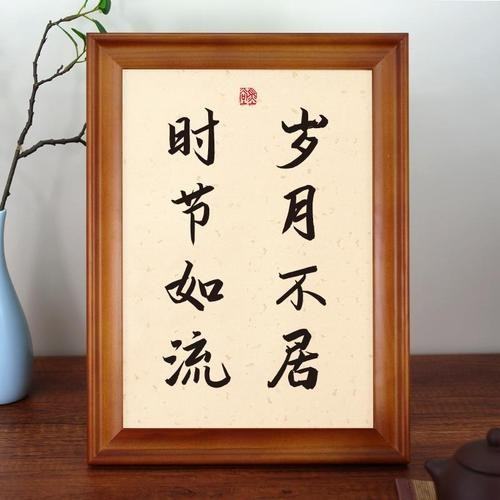 岁月不居
时节如流